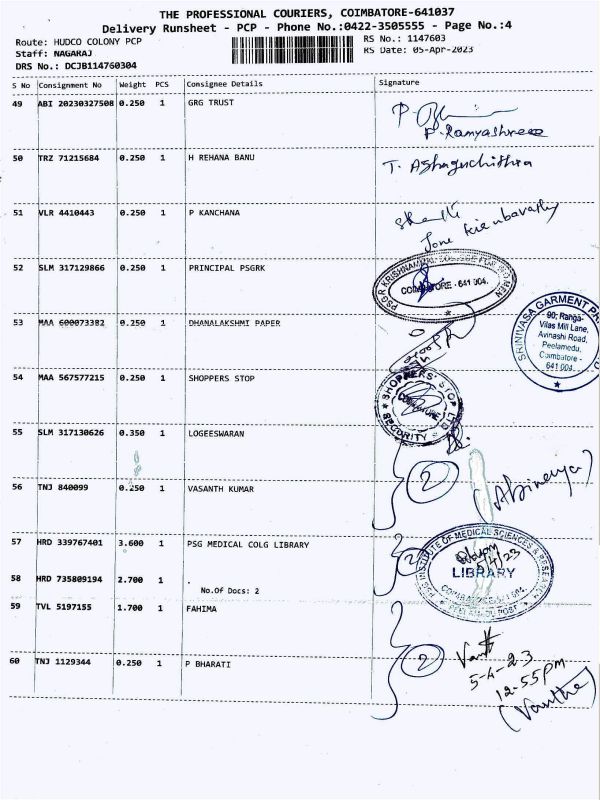 THE PROFESSIONAL COURIERS, COIMBATORE-641037
Delivery Runsheet - PCP - Phone No.:0422-3505555 - Page No.:4
Route: HUDCO COLONY PCP
RS No.: 1147603
Staff: NAGARAJ
RS Date: 05-Apr-2023
DRS No.: DCJB114760304
S No Consignment No Weight PCS Consignee Details Signature
49 ABI 20230327508 0.250 1 GRG TRUST
P. Ramyashree
50 TRZ 71215684 0.250 1 H REHANA BANU
51 VLR 4410443 0.250 1 P KANCHANA
52 SLM 317129866 0.250 1 PRINCIPAL PSGRK
PSGR KRISHNAMMAL COLLEGE FOR WOMEN
COIMBATORE - 641 004.
53 MAA 600073382 0.250 1 DHANALAKSHMI PAPER
SRINIVASA GARMENT
90, Ranga-
Vilas Mill Lane,
Avinashi Road,
Peelamedu,
Coimbatore -
641 004.
54 MAA 567577215 0.250 1 SHOPPERS STOP
SHOPPERS' STOP LTD
SECURITY
COIMBATORE
55 SLM 317130626 0.350 1 LOGEESWARAN
56 TNJ 840099 0.250 1 VASANTH KUMAR
2
(Abinaya)
57 HRD 339767401 3.600 1 PSG MEDICAL COLG LIBRARY
58 HRD 735809194 2.700 1 .
No.Of Docs: 2
2
PSG INSTITUTE OF MEDICAL SCIENCES & RESEARCH
5/4/23
LIBRARY
COIMBATORE-641 004.
59 TVL 5197155 1.700 1 FAHIMA
60 TNJ 1129344 0.250 1 P BHARATI
2
5-4-23
12-55pm